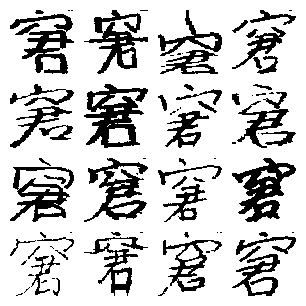 窘窘窘窘
窘窘窘窘
窘窘窘窘
窘窘窘窘